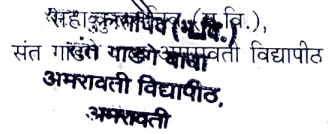 सहा.कुलसचिव (म.वि.),
संत गाडगे बाबा अमरावती विद्यापीठ
संत गाडगे बाबा
अमरावती विद्यापीठ,
अमरावती